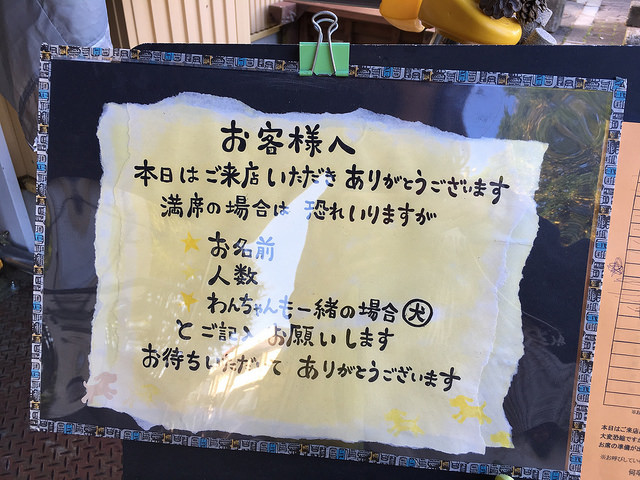 お客様へ
本日はご来店いただき ありがとうございます
満席の場合は 恐れいりますが
お名前
人数
わんちゃんも一緒の場合 犬
とご記入 お願いします
お待ちいただいて ありがとうございます
本日はご来店
大変恐縮ですが
お席の準備が